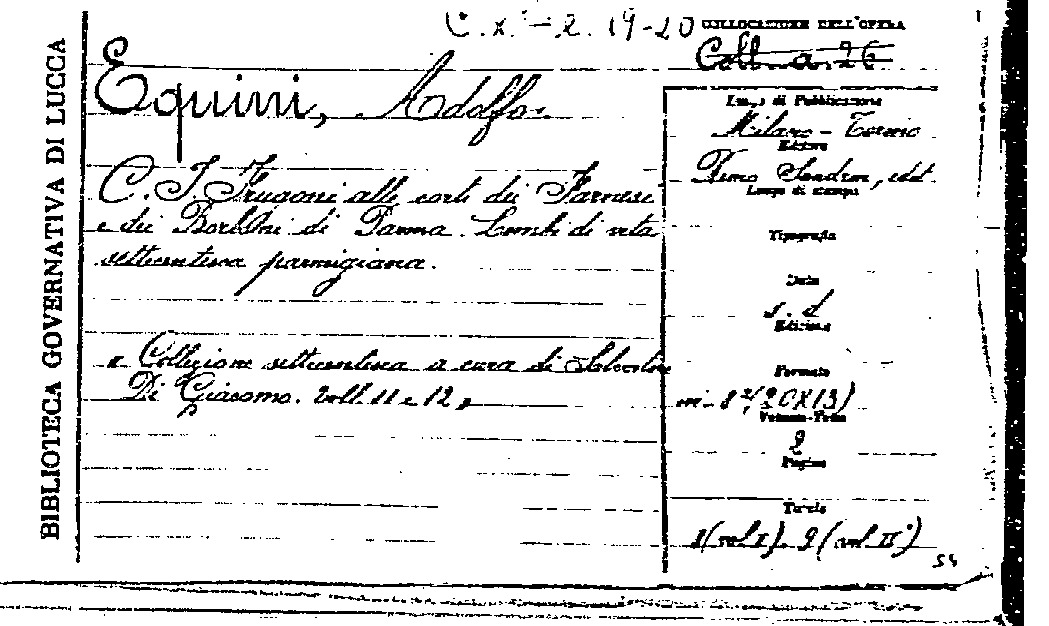 BIBLIOTECA GOVERNATIVA DI LUCCA
C. x. - 2. 19-20
COLLOCAZIONE DELL'OPERA
Coll. a. 26
Equini, Adolfo
C. I. Frugoni alle corti dei Farnesi
e dei Borboni di Parma. Lembi di vita
settecentesca parmigiana.
« Collezione settecentesca a cura di Salvatore
Di Giacomo. Voll. 11 e 12 »
Luogo di Pubblicazione
Milano - Torino
Editore
Remo Sandron, edit.
Luogo di stampa
Tipografia
Data
s. d.
Edizione
Formato
in-8° (20X13)
Volume-Tomo
2
Pagine
Tavole
1 (vol. I). 2 (vol. II°)
54